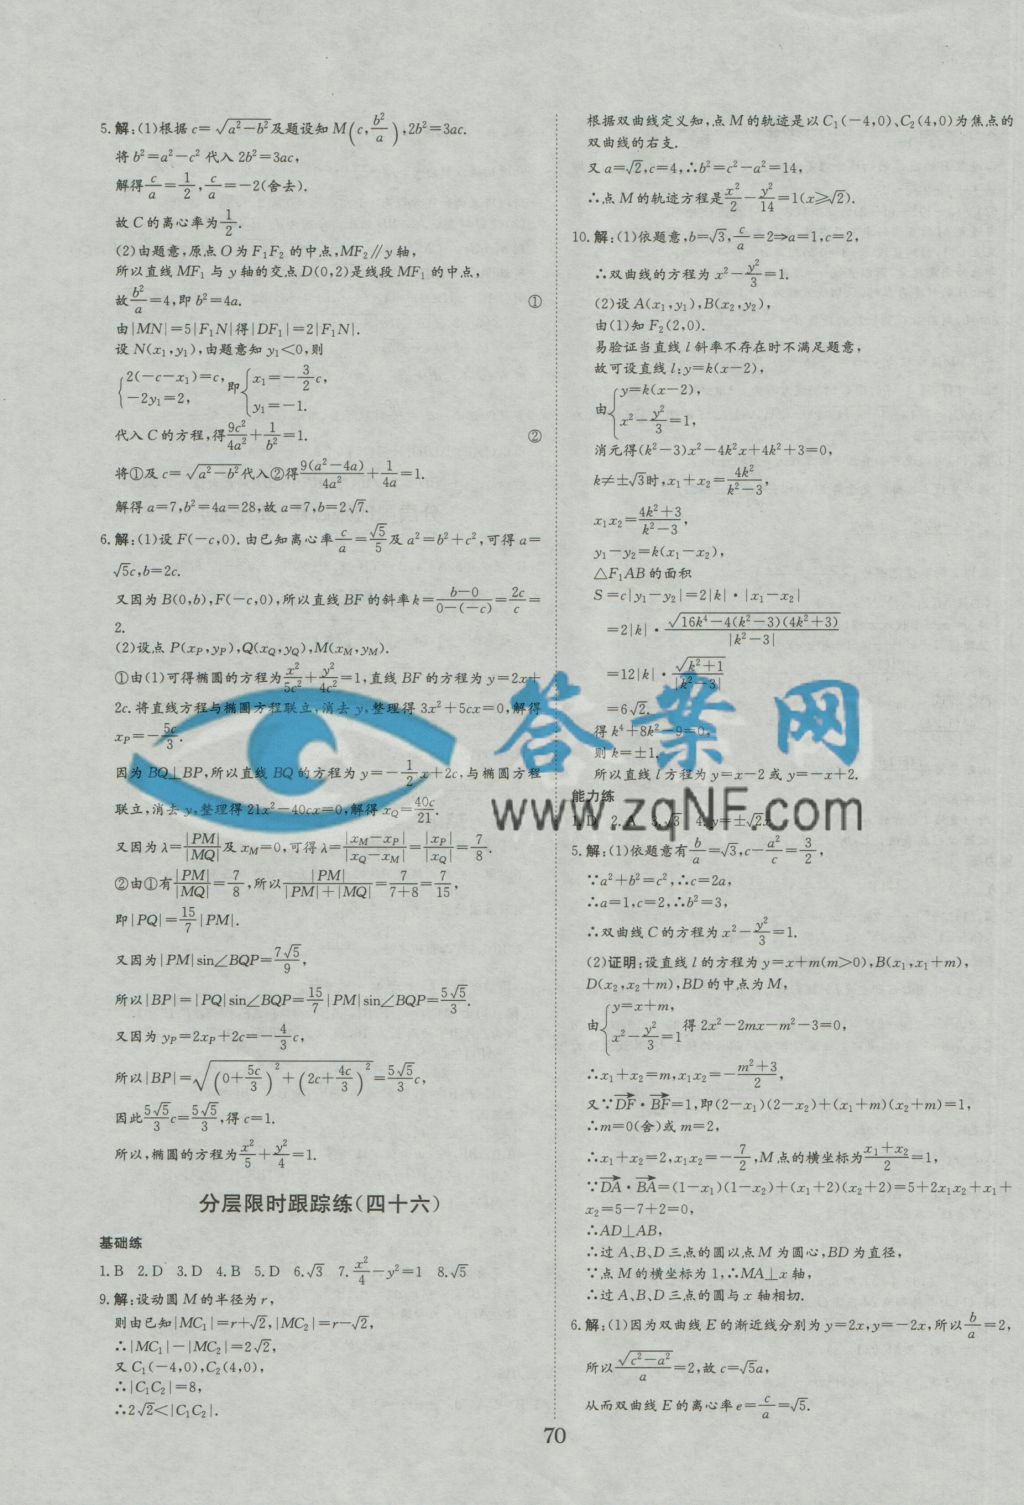 5.解:(1)根据c=√(a²-b²)及题设知M(c,b²/a),2b²=3ac.
将b²=a²-c²代入2b²=3ac,
解得c/a=1/2,c/a=-2(舍去).
故C的离心率为1/2.
(2)由题意,原点O为F₁F₂的中点,MF₂∥y轴,
所以直线MF₁与y轴的交点D(0,2)是线段MF₁的中点,
故b²/a=4,即b²=4a. ①
由|MN|=5|F₁N|得|DF₁|=2|F₁N|.
设N(x₁,y₁),由题意知y₁<0,则
{2(-c-x₁)=c, -2y₁=2, 即{x₁=-3/2c, y₁=-1.
代入C的方程,得9c²/4a²+1/b²=1. ②
将①及c=√(a²-b²)代入②得9(a²-4a)/4a²+1/4a=1.
解得a=7,b²=4a=28,故a=7,b=2√7.
6.解:(1)设F(-c,0).由已知离心率c/a=√5/5及a²=b²+c²,可得a=
√5c,b=2c.
又因为B(0,b),F(-c,0),所以直线BF的斜率k=(b-0)/(0-(-c))=2c/c=
2.
(2)设点P(x_P,y_P),Q(x_Q,y_Q),M(x_M,y_M).
①由(1)可得椭圆的方程为x²/5c²+y²/4c²=1,直线BF的方程为y=2x+
2c.将直线方程与椭圆方程联立,消去y,整理得3x²+5cx=0,解得
x_P=-5c/3.
因为BQ⊥BP,所以直线BQ的方程为y=-1/2x+2c,与椭圆方程
联立,消去y,整理得21x²-40cx=0,解得x_Q=40c/21.
又因为λ=|PM|/|MQ|及x_M=0,可得λ=|x_M-x_P|/|x_Q-x_M|=|x_P|/|x_Q|=7/8.
②由①有|PM|/|MQ|=7/8,所以|PM|/(|PM|+|MQ|)=7/(7+8)=7/15,
即|PQ|=15/7|PM|.
又因为|PM|sin∠BQP=7√5/9,
所以|BP|=|PQ|sin∠BQP=15/7|PM|sin∠BQP=5√5/3.
又因为y_P=2x_P+2c=-4/3c,
所以|BP|=√((0+5c/3)²+(2c+4c/3)²)=5√5/3c,
因此5√5/3c=5√5/3,得c=1.
所以,椭圆的方程为x²/5+y²/4=1.
分层限时跟踪练(四十六)
基础练
1.B 2.D 3.D 4.B 5.D 6.√3 7.x²/4-y²=1 8.√5
9.解:设动圆M的半径为r,
则由已知|MC₁|=r+√2,|MC₂|=r-√2,
∴|MC₁|-|MC₂|=2√2,
又C₁(-4,0),C₂(4,0),
∴|C₁C₂|=8,
∴2√2<|C₁C₂|.
根据双曲线定义知,点M的轨迹是以C₁(-4,0)、C₂(4,0)为焦点的
双曲线的右支.
又a=√2,c=4,∴b²=c²-a²=14,
∴点M的轨迹方程是x²/2-y²/14=1(x≥√2).
10.解:(1)依题意,b=√3,c/a=2⇒a=1,c=2,
∴双曲线的方程为x²-y²/3=1.
(2)设A(x₁,y₁),B(x₂,y₂),
由(1)知F₂(2,0).
易验证当直线l斜率不存在时不满足题意,
故可设直线l:y=k(x-2),
由{y=k(x-2), x²-y²/3=1,
消元得(k²-3)x²-4k²x+4k²+3=0,
k≠±√3时,x₁+x₂=4k²/(k²-3),
x₁x₂=(4k²+3)/(k²-3),
y₁-y₂=k(x₁-x₂),
△F₁AB的面积
S=c|y₁-y₂|=2|k|·|x₁-x₂|
=2|k|·√(16k⁴-4(k²-3)(4k²+3))/|k²-3|
=12|k|·√(k²+1)/|k²-3|
=6√2.
得k⁴+8k²-9=0,
则k=±1.
所以直线l方程为y=x-2或y=-x+2.
能力练
1.D 2.A 3.√3 4.y=±√2x
5.解:(1)依题意有b/a=√3,c-a²/c=3/2,
∵a²+b²=c²,∴c=2a,
∴a=1,c=2,∴b²=3,
∴双曲线C的方程为x²-y²/3=1.
(2)证明:设直线l的方程为y=x+m(m>0),B(x₁,x₁+m),
D(x₂,x₂+m),BD的中点为M,
由{y=x+m, x²-y²/3=1 得2x²-2mx-m²-3=0,
∴x₁+x₂=m,x₁x₂=-(m²+3)/2,
又∵DF→·BF→=1,即(2-x₁)(2-x₂)+(x₁+m)(x₂+m)=1,
∴m=0(舍)或m=2,
∴x₁+x₂=2,x₁x₂=-7/2,M点的横坐标为(x₁+x₂)/2=1,
∵DA→·BA→=(1-x₁)(1-x₂)+(x₁+2)(x₂+2)=5+2x₁x₂+x₁+
x₂=5-7+2=0,
∴AD⊥AB,
∴过A、B、D三点的圆以点M为圆心,BD为直径,
∵点M的横坐标为1,∴MA⊥x轴,
∴过A、B、D三点的圆与x轴相切.
6.解:(1)因为双曲线E的渐近线分别为y=2x,y=-2x,所以b/a=2,
所以√(c²-a²)/a=2,故c=√5a,
从而双曲线E的离心率e=c/a=√5.
70
答案网
www.zqNF.com